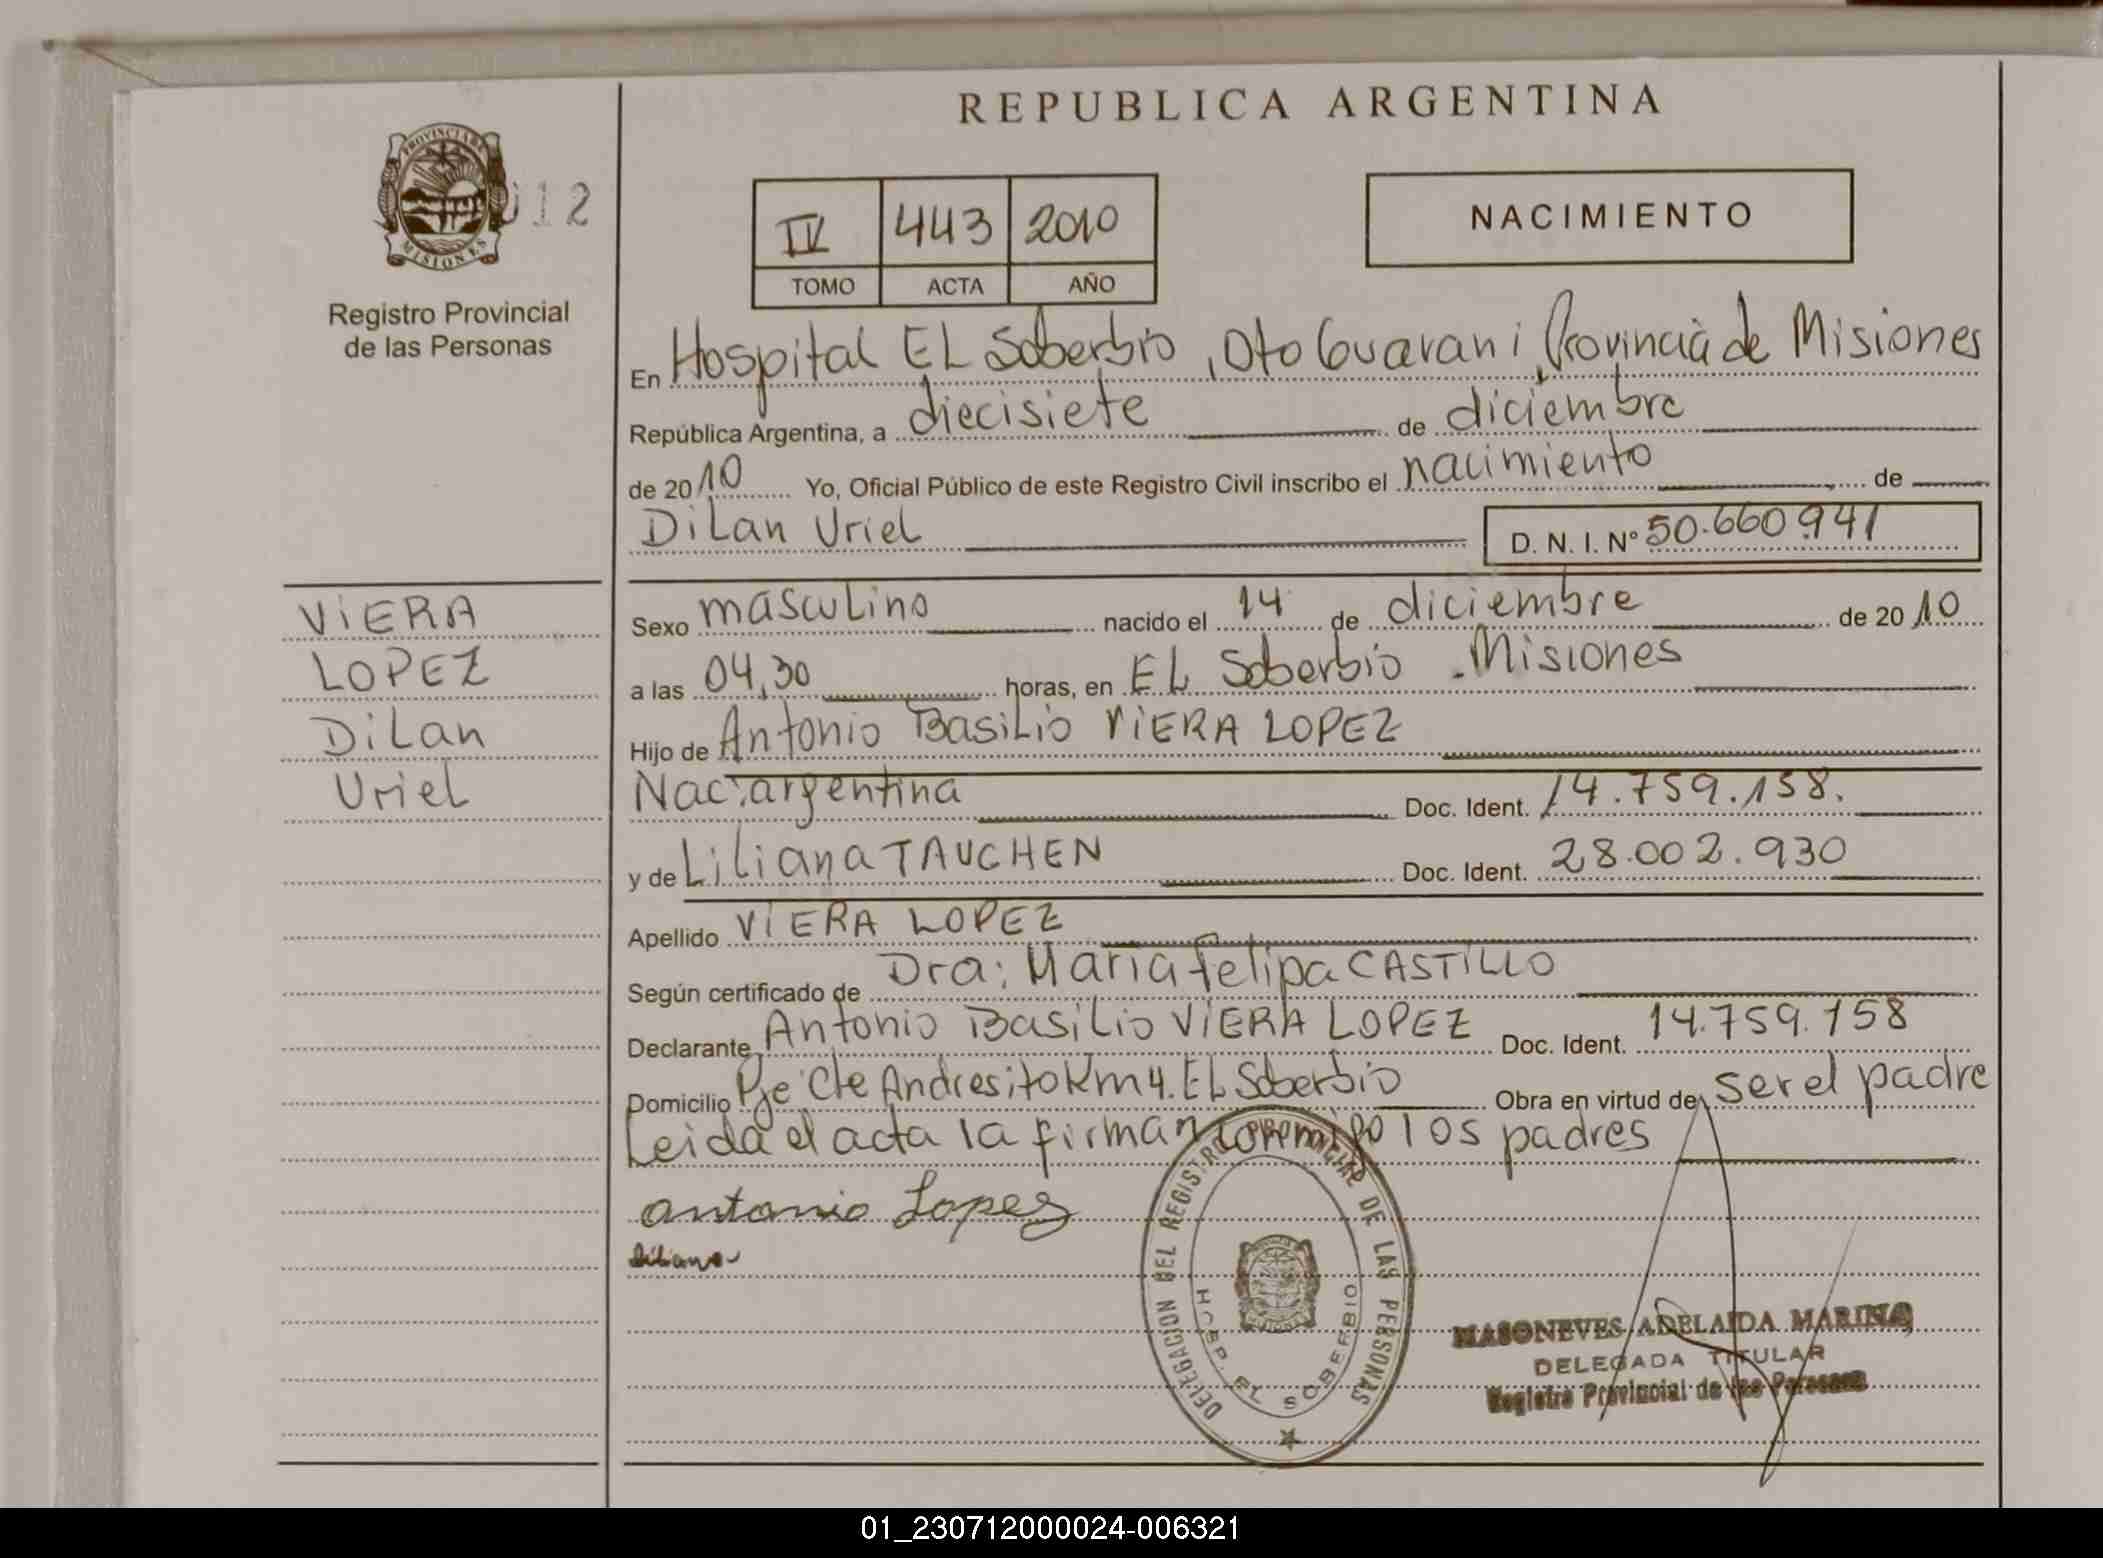 REPUBLICA ARGENTINA
PROVINCIA DE MISIONES
012
Registro Provincial
de las Personas
IV 443 2010
TOMO ACTA AÑO
NACIMIENTO
En Hospital EL Soberbio, Dto Guarani, Provincia de Misiones
República Argentina, a diecisiete de diciembre
de 2010 Yo, Oficial Público de este Registro Civil inscribo el nacimiento de
DiLan Uriel D. N. I. Nº 50.660.941
VIERA
LOPEZ
DiLan
Uriel
Sexo mascuLino nacido el 14 de diciembre de 2010
a las 04,30 horas, en EL Soberbio - Misiones
Hijo de Antonio BasiLio VIERA LOPEZ
Nac: argentina Doc. Ident. 14.759.158.
y de LiLiana TAUCHEN Doc. Ident. 28.002.930
Apellido VIERA LOPEZ
Según certificado de Dra: Maria Felipa CASTILLO
Declarante Antonio BasiLio VIERA LOPEZ Doc. Ident. 14.759.158
Domicilio Pje Cte Andresito Km 4. EL Soberbio Obra en virtud de ser el padre
Leida el acta la firman conmigo los padres
antonio Lopez
Liliana
DELEGACION DEL REGISTRO PROVINCIAL DE LAS PERSONAS
HOSP. EL SOBERBIO
MASONEVES ADELAIDA MARINA
DELEGADA TITULAR
Registro Provincial de las Personas
01_230712000024-006321